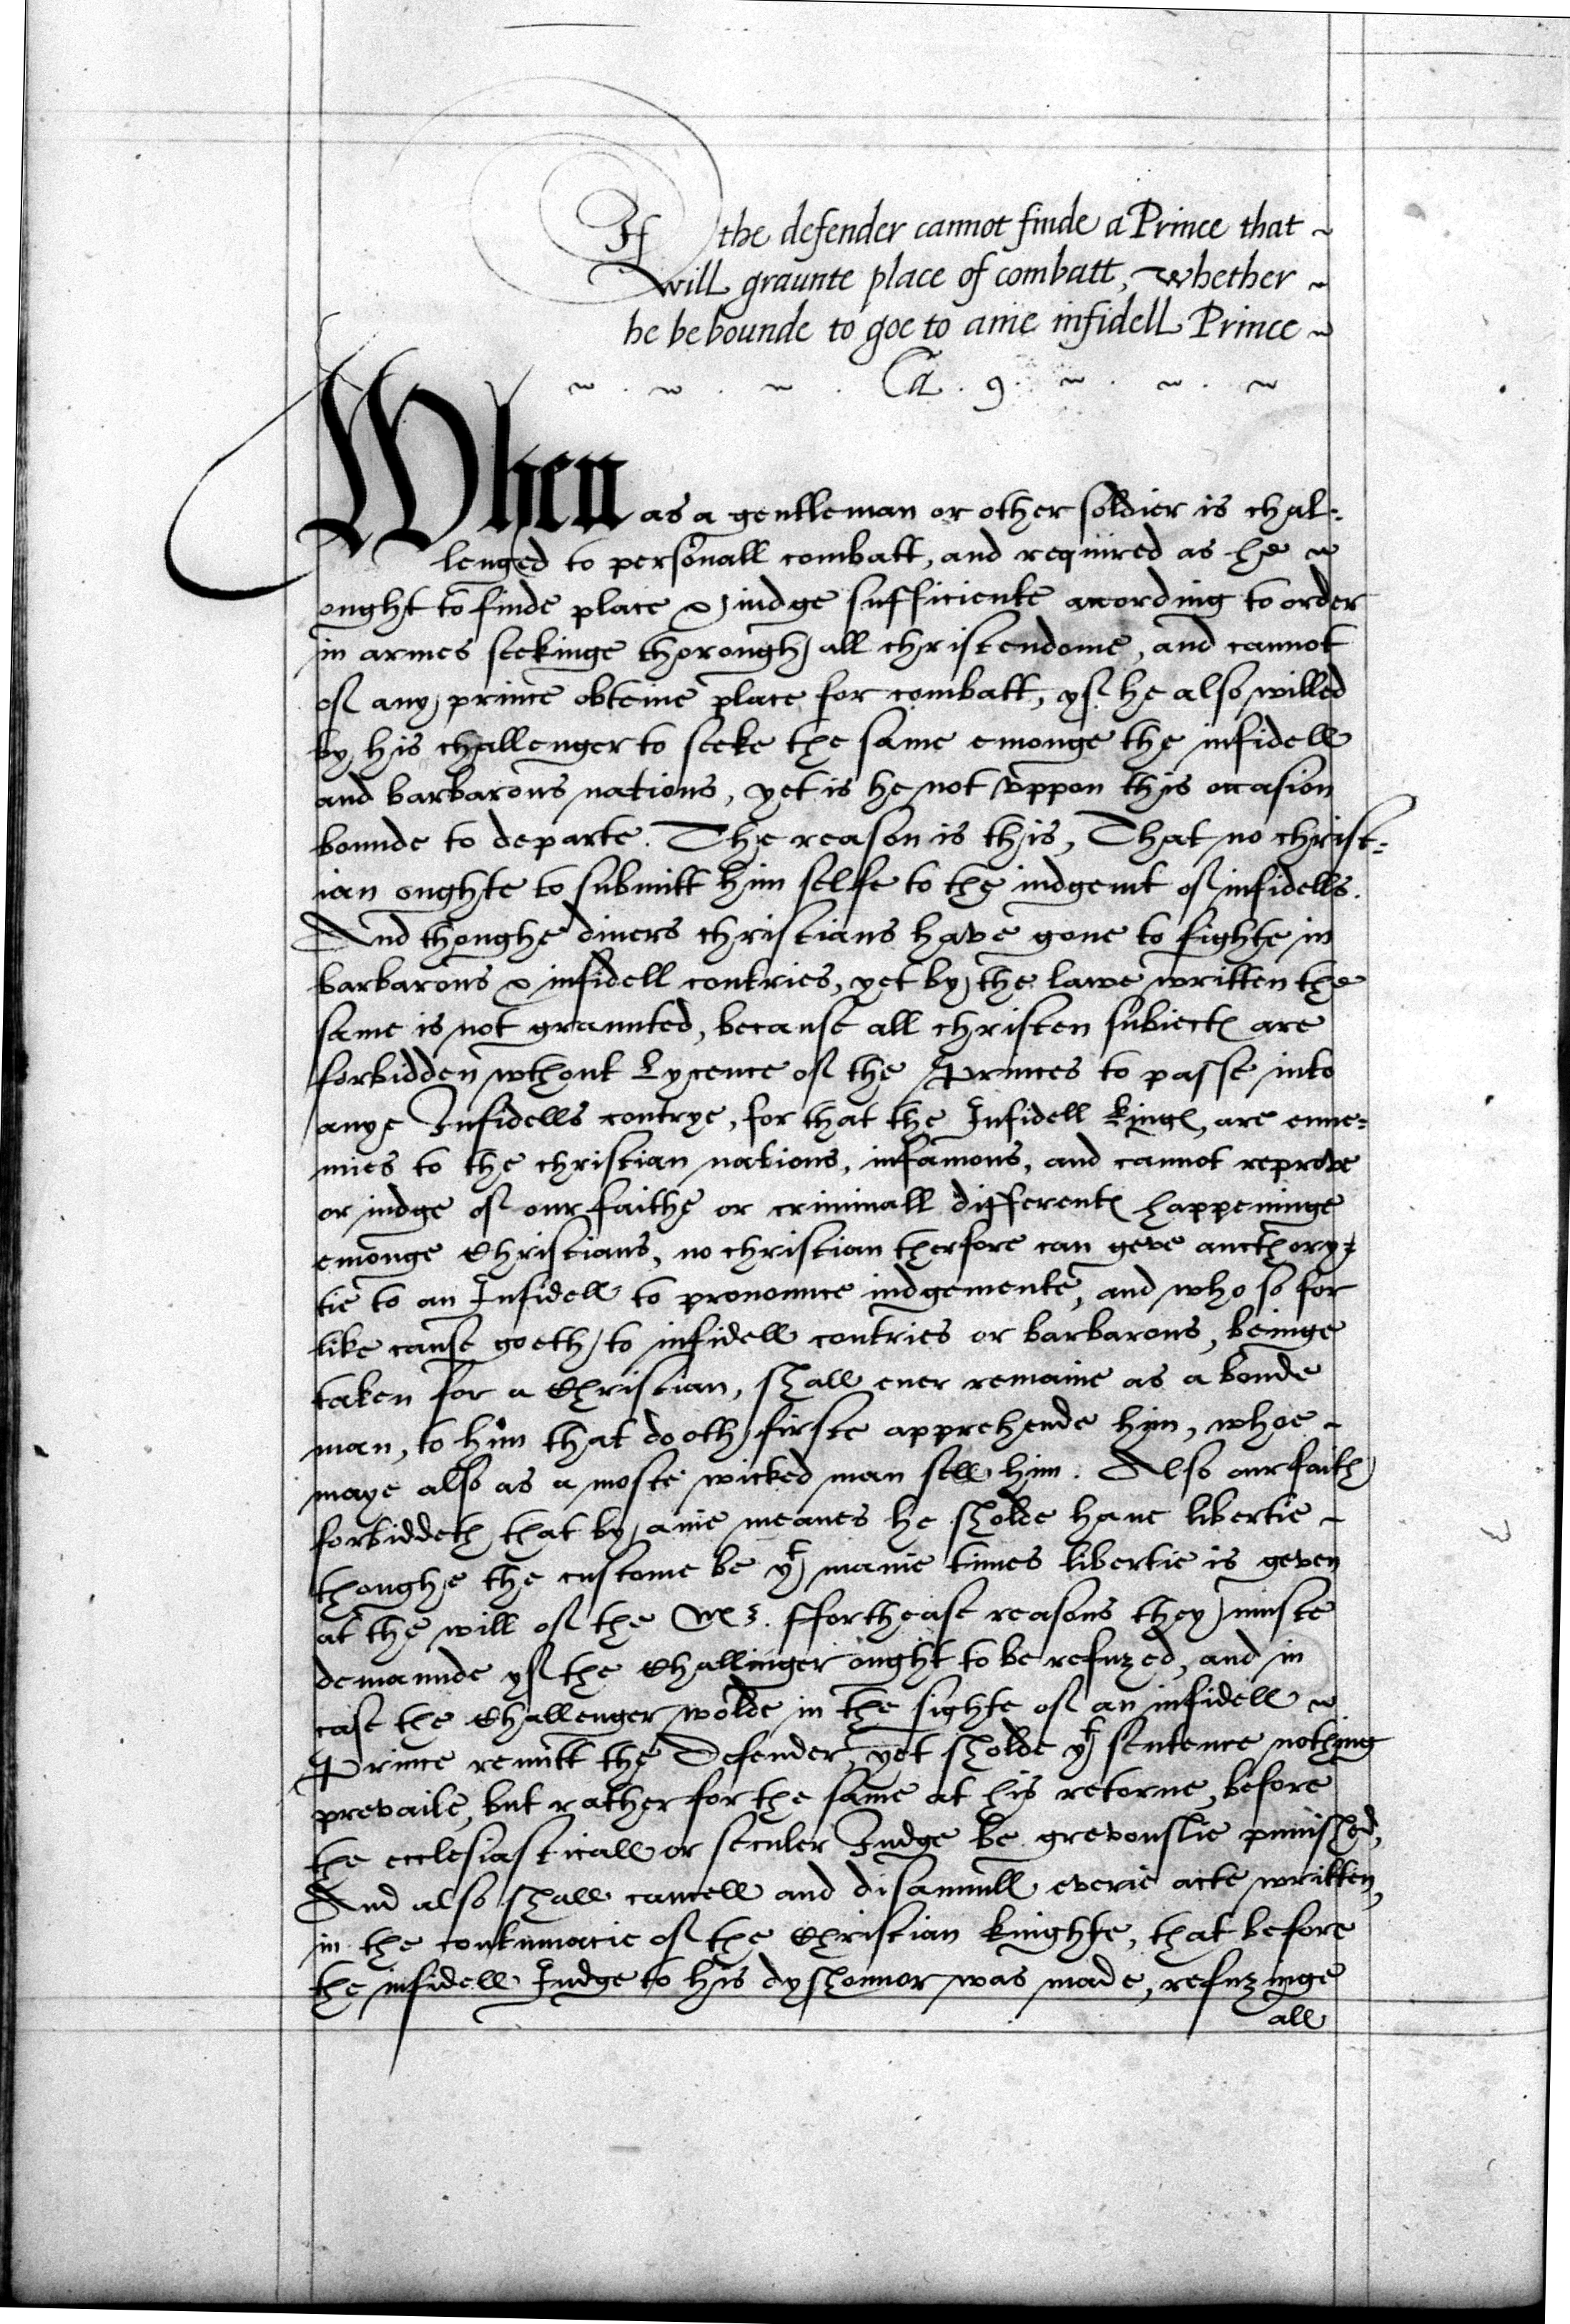 If the defender cannot finde a Prince that ~
will graunte place of combatt, whether ~
he be bounde to goe to anie infidell Prince ~
~ . ~ . ~ . Ca . 9 . ~ . ~ . ~
When as a gentleman or other soldier is chal=
lenged to personall combatt, and required as he ~
ought to finde place & iudge sufficiente according to order
in armes seekinge thorough all christendome, and cannot
of any prince obteine place for combatt, yf he also willed
by his challenger to seeke the same emonge the infidell
and barbarous nations, yet is he not vppon this occasion
bounde to departe. The reason is this, That no christ=
ian oughte to submitt him selfe to the iudgemt of infidells.
And thoughe diuers christians have gone to fighte in
barbarous & infidell contries, yet by the lawe written the
same is not graunted, because all christen subiectes are
forbidden wthout Lycence of the Princes to passe into
anye Infidells contrye, for that the Infidell kinges, are enne=
mies to the christian nations, infamous, and cannot reprove
or iudge of our faithe or criminall differentes happeninge
emonge Christians, no christian therfore can geve aucthory=
tie to an Infidell to pronounce iudgemente, and who so for
like cause goeth to infidell contries or barbarous, beinge
taken for a Christian, shall euer remaine as a bonde
man, to him that dooth firste apprehende him, whoe ~
maye also as a moste wicked man sell him. Also our faith
forbiddeth that by anie meanes he sholde haue libertie ~
thoughe the custome be yt manie times libertie is geven
at the will of the . ffor thease reasons they muste
demaunde yf the Challinger ought to be refuzed, and in
case the Challenger wolde in the sighte of an infidell ~
Prince remitt the Defender, yet sholde yt sentence nothing
prevaile, but rather for the same at his retorne, before
the ecclesiasticall or seculer Iudge be grevouslie punished,
And also shall cancell and disannull everie acte written,
in the contumacie of the Christian knighte, that before
the infidell Iudge to his dyshonnor was made, refuzinge
all